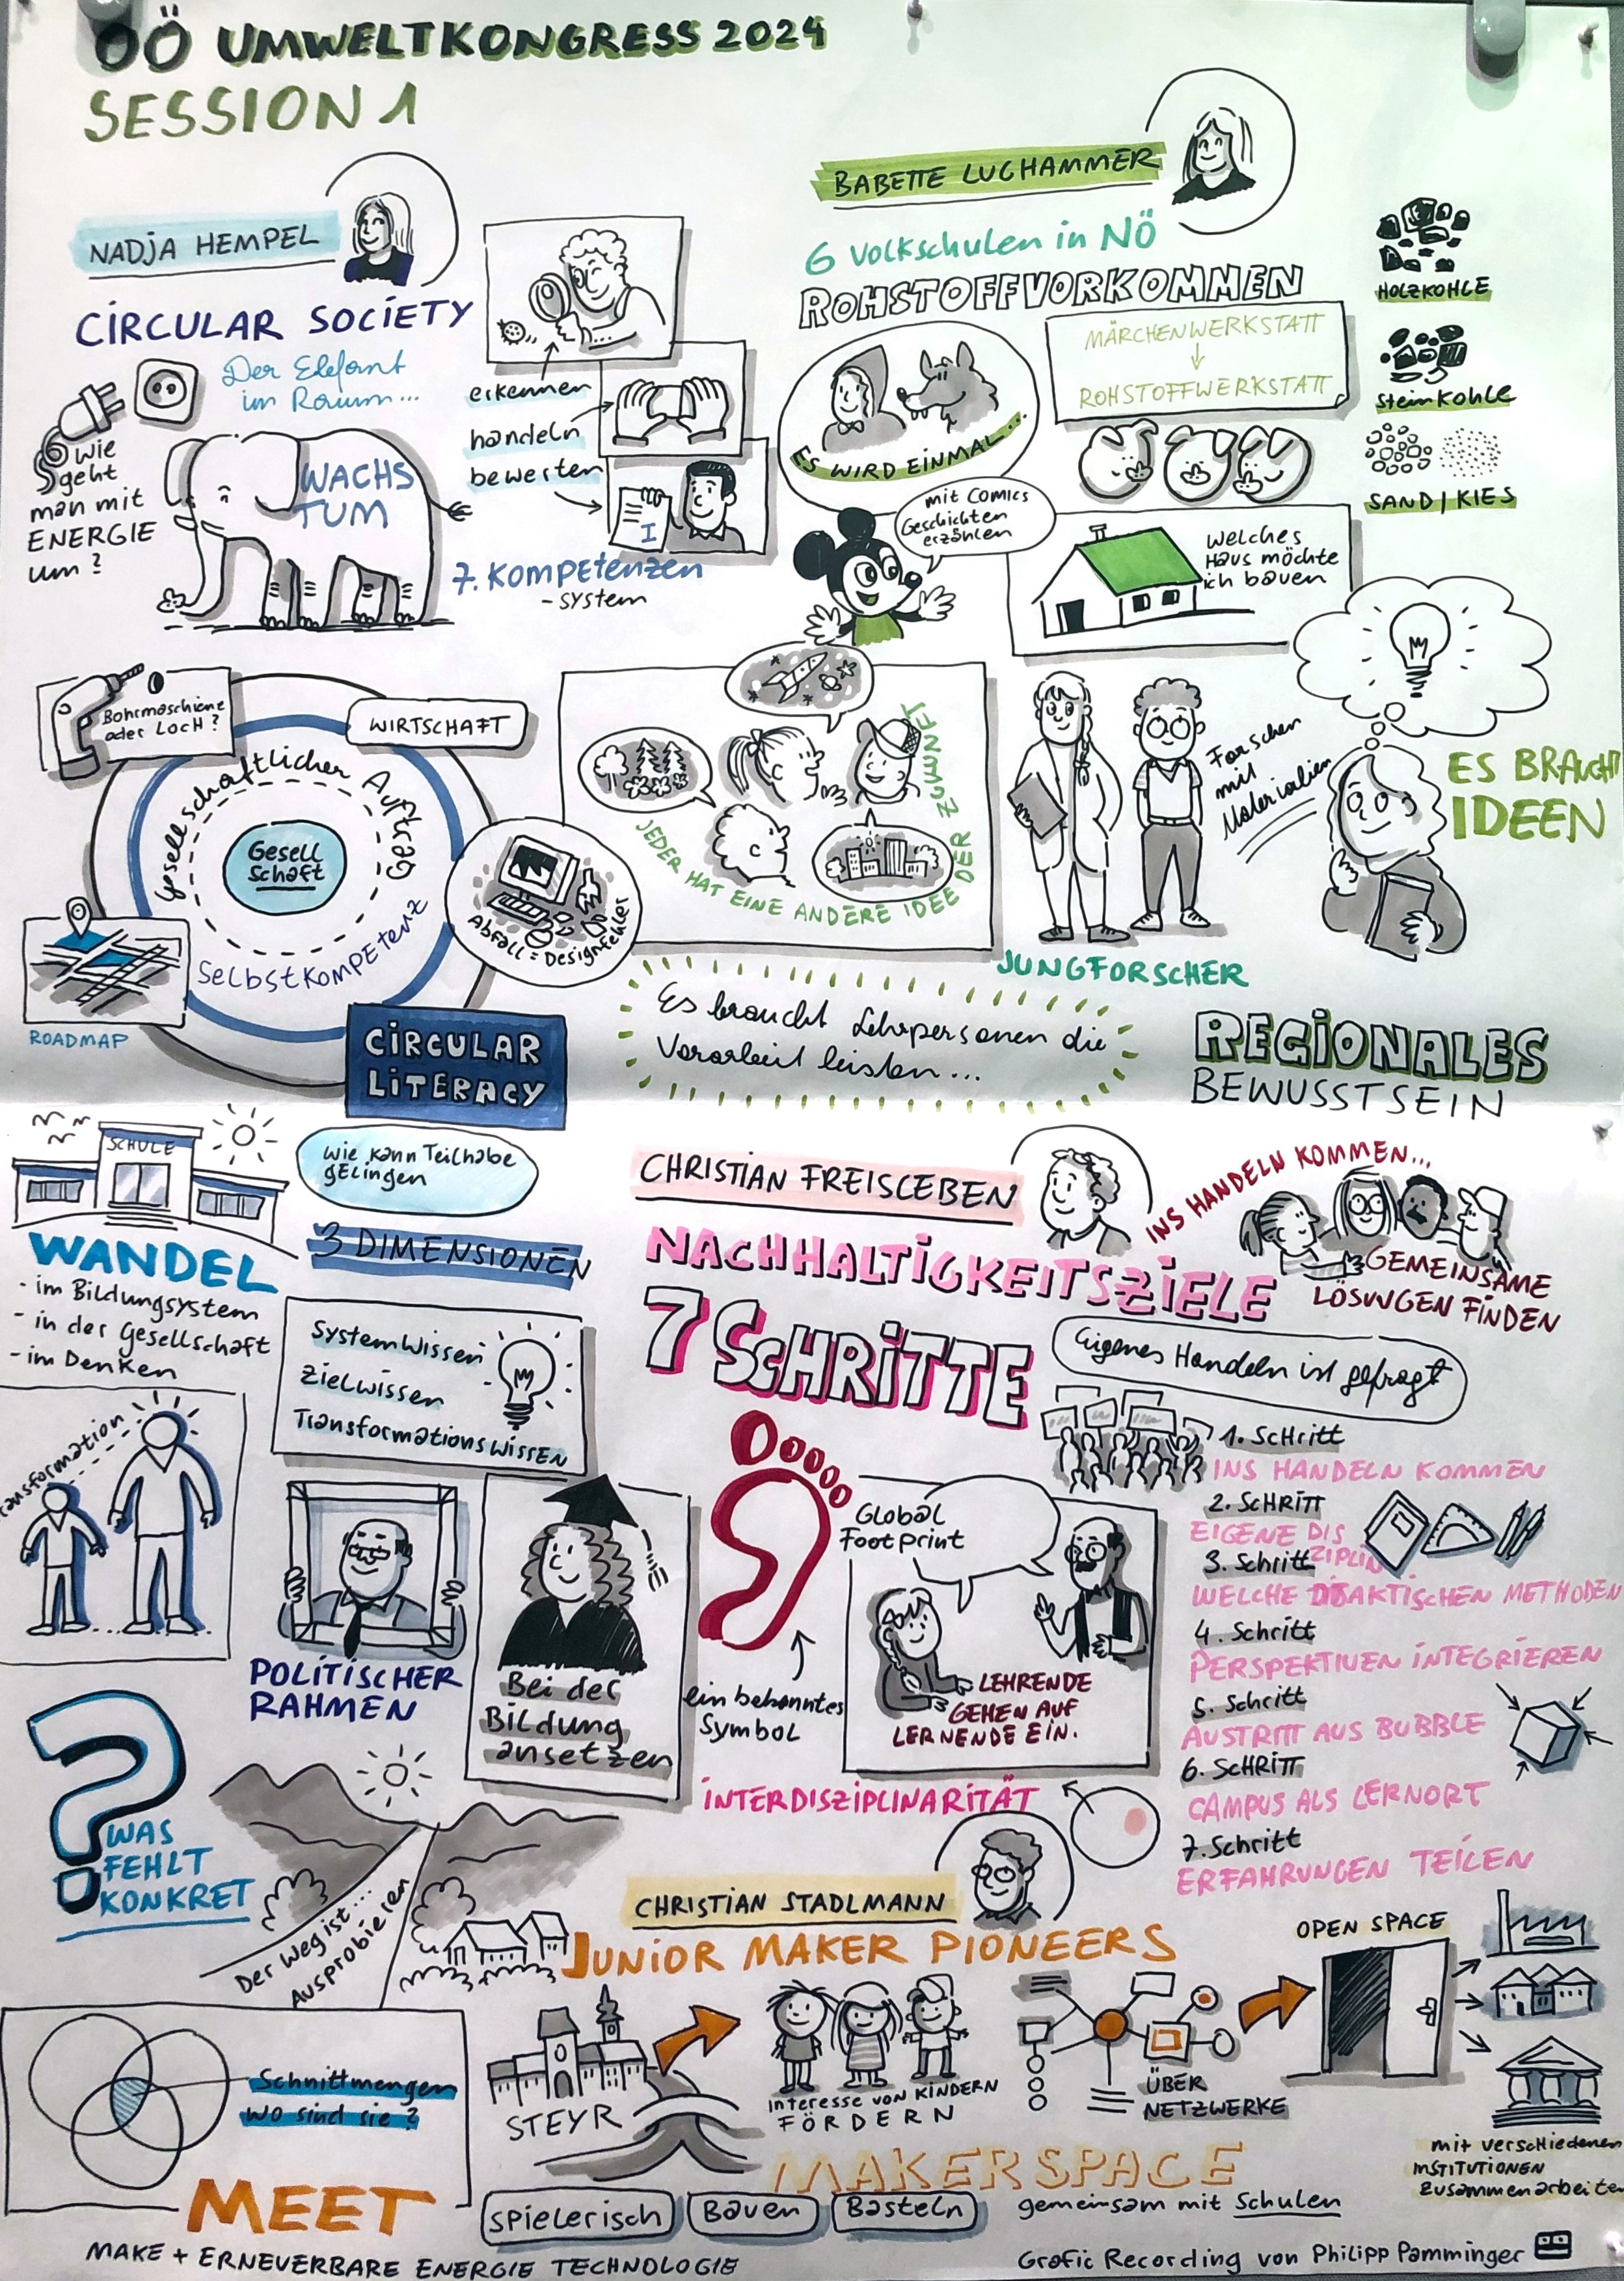 OÖ UMWELTKONGRESS 2024
SESSION 1
NADJA HEMPEL
CIRCULAR SOCIETY
Der Elefant
im Raum...
wie
geht
man mit
ENERGIE
um?
WACHS
TUM
erkennen
handeln
bewerten
I
7. KOMPETENZEN
-SYSTEM
Bohrmaschiene
oder LOCH?
WIRTSCHAFT
Gesellschaftlicher Auftrag
Gesell
schaft
Selbstkompetenz
Abfall = Designfehler
ROADMAP
CIRCULAR
LITERACY
BABETTE LUGHAMMER
6 Volkschulen in NÖ
ROHSTOFFVORKOMMEN
MÄRCHENWERKSTATT
↓
ROHSTOFFWERKSTATT
ES WIRD EINMAL..
mit Comics
Geschichten
erzählen
welches
Haus möchte
ich bauen
HOLZKOHLE
Steinkohle
SAND/KIES
JEDER HAT EINE ANDERE IDEE DER ZUKUNFT
Forschen
mit
Materialien
JUNGFORSCHER
ES BRAUCHT
IDEEN
Es braucht Lehrpersonen die
Vorarbeit leisten...
REGIONALES
BEWUSSTSEIN
SCHULE
wie kann Teilhabe
gelingen
WANDEL
- im Bildungsystem
- in der Gesellschaft
- im Denken
3 DIMENSIONEN
Systemwissen
Zielwissen
Transformationswissen
ransformation
POLITISCHER
RAHMEN
Bei der
Bildung
ansetzen
WAS
FEHLT
KONKRET
Der Weg ist...
Ausprobieren
Schnittmengen
wo sind sie?
CHRISTIAN FREISLEBEN
NACHHALTIGKEITSZIELE
7 SCHRITTE
INS HANDELN KOMMEN...
GEMEINSAME
LÖSUNGEN FINDEN
Eigenes Handeln ist gefragt
Global
Footprint
ein bekanntes
Symbol
LEHRENDE
GEHEN AUF
LERNENDE EIN.
INTERDISZIPLINARITÄT
1. SCHritt
INS HANDELN KOMMEN
2. SCHRITT
EIGENE DIS
ZIPLIN
3. Schritt
WELCHE DIDAKTISCHEN METHODEN
4. Schritt
PERSPEKTIVEN INTEGRIEREN
5. Schritt
AUSTRITT AUS BUBBLE
6. SCHRITT
CAMPUS ALS LERNORT
7. Schritt
ERFAHRUNGEN TEILEN
CHRISTIAN STADLMANN
JUNIOR MAKER PIONEERS
STEYR
INTERESSE VON KINDERN
FÖRDERN
ÜBER
NETZWERKE
OPEN SPACE
mit verschiedenen
INSTITUTIONEN
zusammenarbeiten
MAKERSPACE
MEET
spielerisch
Bauen
Basteln
gemeinsam mit Schulen
MAKE + ERNEUERBARE ENERGIE TECHNOLOGIE
Grafic Recording von Philipp Pamminger